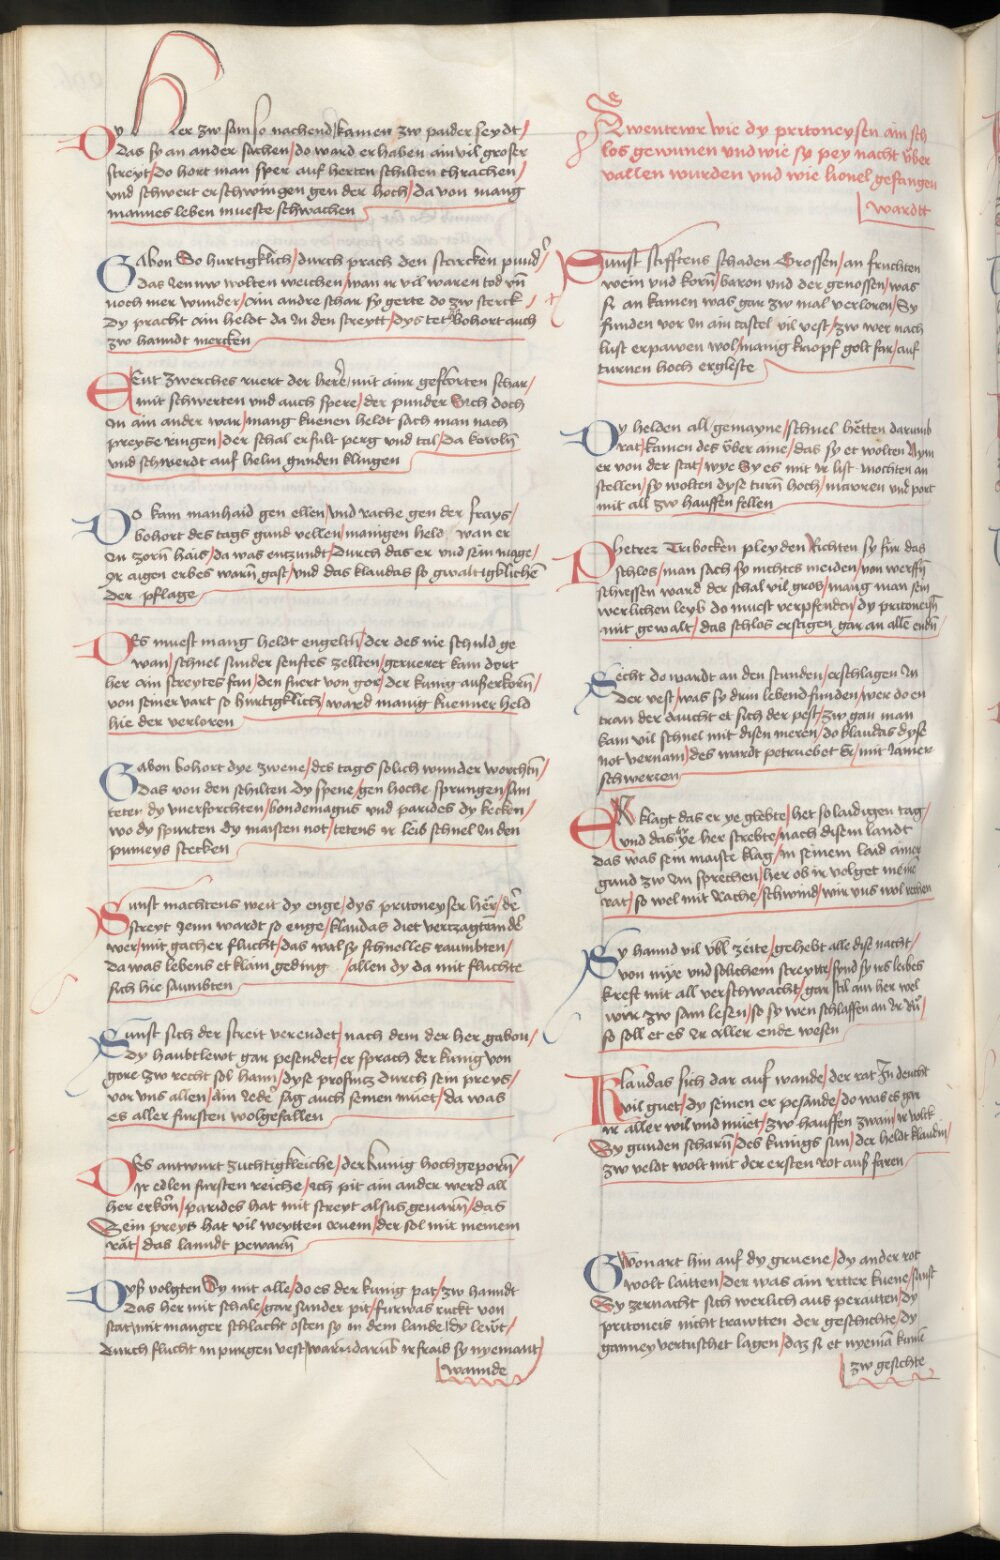 Dy Her zw sam so nachend/kamen zw paider seydt/
das sy an ander sachen/do ward erhaben ain vil groser
streyt/do hort man sper auf herten schilten chrachen/
und schwert erschwingen gen der hoch/da von mang
mannes leben mueste schwachen
Gabon So hurtigklich/durch prach den starcken pund/
das Zenn w wolten weichen/wan ir vil waren tod vn̄
noch mer wunder/ain andre schar sy gerte do zw sterck/
dy pracht ain heldt da In den streytt/dys tet bohort auch
zw hanndt mercken
Gent zwerches ruert der here/mit ainr gescorten schar/
mit schwerten und auch spere/der punder Sich doch
In ain ander war/mang kuenen heldt sach man nach
preyse ringen/der schal erfult perg und tal/da kowln̄
und schwerdt auf helm gunden klingen
Do kam manhaid gen ellen/und rache gen der frays/
bohort des tags gund vellen/manigen held wan er
In zorn̄ hais/da was enzundt/durch das er und sein mage/
Ir aigen erbes warn̄ gast/und das klaudas so gwaltigklichen̄
der pflage
Des muest mang heldt engeltn̄/der des nie schuld ge
wan/schnel sunder senftes zellten/gerueret kam dort
her ain streytes fan/den fuert von gor/der kunig außerkorn̄/
von seiner vart so hurtigklich/ward manig kuenner held
hie der verloren
Gabon bohort dye zwene/des tags solich wunder worchtn̄/
das von den schilten dy spene/gen hoche sprungen/sam
teten dy unerforchten/bondemagus und parides dy kecken/
wo dy spurten dy maisten not/tetens ir leib schnel In den
pumeys stecken
Sunst machtens weit dy enge/dys pritoneyser her/der
streyt Jenn wardt so enge/klaudas diet verzagt an der
wer/mit gacher flucht/das wal sy schnelles raumbten/
da was lebens et klain geding/allen dy da mit fluchte
sich hie saumbten
Sunst sich der streit verendet/nach dem der her gabon/
dy haubtlewt gar pesendet/er sprach der kunig von
gore zw recht sol hann/dyse profincz durch sein preys/
vor uns allen/ain Jeder sag auch seinen muet/da was
es aller fursten wolgefallen
Des antwurt zuchtigkleiche/der kunig hochgeporn̄/
Ir edlen fursten reiche/ich pit ain ander werd all
her erkorn̄/parides hat mit streyt alsus gevarn̄/das
Sein preys hat vil weytten ruem/der sol mit meinem
rat/das lanndt pewarn̄
Dyß volgten Sy mit alle/do es der kunig pat/zw hanndt
das her mit schale/gar sunder pit/furwas ruckt von
stat/mit manger schlacht osten sy in dem lande/dy lewt/
durch flucht in purgen vest/warn̄ darumb ir frais sy nyemant/
wannde
Abwentewr wie dy pritoneysen ain sch
los gewunen und wie sy pey nacht uber
vallen wurden und wie lionel gefangen
wardtt
Sunst stifftens schaden Grossen/an fruchten
wein und korn̄/baron und der genossen/was
si an kamen was gar zw mal verloren/Sy
funden vor In ain castel vil vest/zw wer nach
lust erpawen wol/manig knopf golt far/auf
turnen hoch ergleste
Dy helden all gemayne/schnel hetten darumb
rat/kamen des uber aine/das sy et wolten Nym
er von der stat/wye Sy es mit ir list mochten an
stellen/sy wolten dyse turn̄ hoch/mawren und port
mit all zw hauffen fellen
Phetrer Tribocken pleyden Richten sy fur das
schlos/man sach sy nichtes meiden/von werffn̄
schiessen ward der schal vil gros/mang man sein
werlichen leyb do muest verpfenden/dy pritoneysn̄
mit gewalt/das schlos erstigen gar an allen endn̄
Secht do wardt an den stunden/erschlagen In
der vest/was sy drin lebend funden/wer do en
tran der daucht et sich der pest/zw gan man
kam vil schnel mit disen meren/do klaudas dyse
not vernam/des wardt petruebet Er/mit Jamer
schwerten
Er klagt das er ye glebte/het so laidigen tag/
und das er ye her strebte/nach disem landt
das was sein maiste klag/in seinem laid ainer
gund zw Im sprechen/her ob ir volget meinē
rat/so wel mit Rache/schwind/wir uns wol rechen
Sy hannd vil ubl zeite/gehebt alle dise nacht/
von mye und solichem streytte/synd sy irs leibes
kreft mit all verschwacht/gar stil ain her wel
wir zw sam lesen/so sy wen schlaffen an ir Ru/
so soll et es Ir aller ende wesen
Klaudas sich dar auf wande/der rat In deucht
vil guet/dy seinen er pesande/do was es gar
ir aller wil und muet/zw hauffen zwam/ir volck
Sy gunden scharn̄/des kunigs sun/der heldt klaudin/
zw veldt wolt mit der ersten rot auß faren
Gwonart hin auf dy gruene/dy ander rot
wolt laitten/der was ain ritter kuene/sunst
Sy zernacht sich werlich aus peraitten/dy
pritoneis nicht trawtten der geschichte/dy
ganney vertuschet lagen/daz si et nyemā kume
zw gesichte